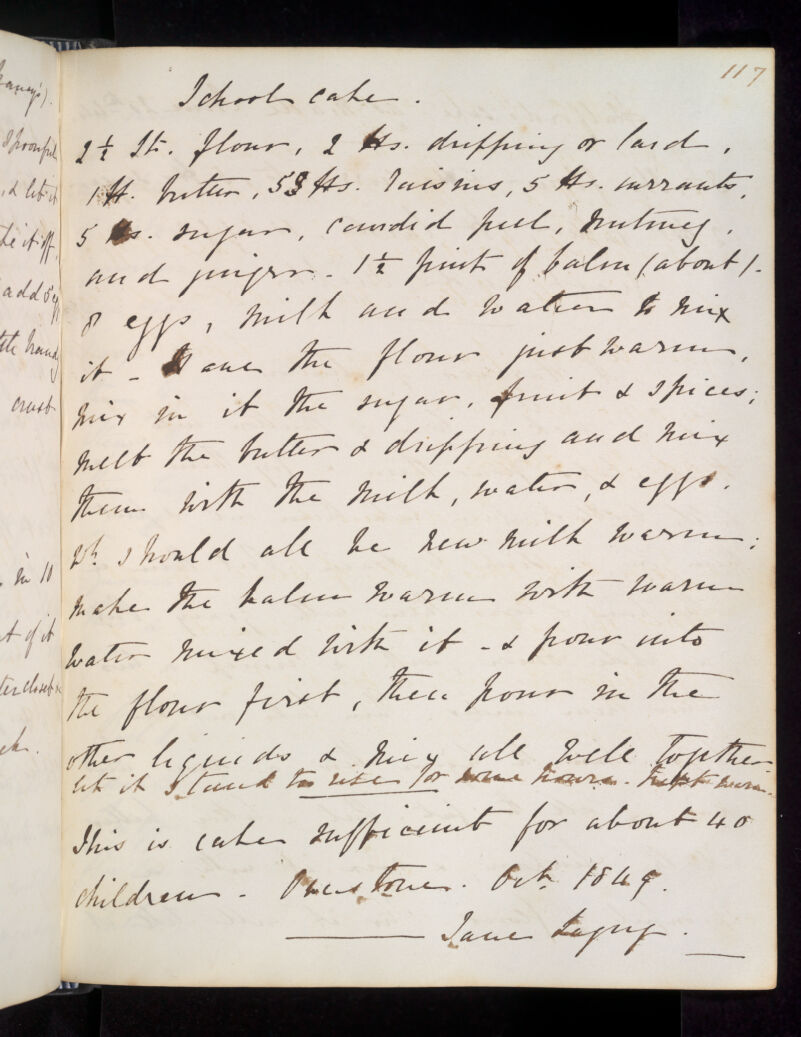 117
School cake.
2½ St. flour, 2 lbs. dripping or lard,
1 lb. butter, 5 lbs. raisins, 5 lbs. currants,
5 lbs. sugar, candid peel, nutmeg,
and ginger - 1½ pint of balm (about).
8 eggs, milk and water to mix
it - Have the flour just warm,
mix in it the sugar, fruit & spices;
melt the butter & dripping and mix
them with the milk, water, & eggs.
wh. should all be new milk warm;
make the balm warm with warm
water mixed with it - & pour into
the flour first, then pour in the
other liquids & mix all well together
let it stand to rise for some hours. kept warm.
This is cake sufficient for about 40
children - Overstone. Octr. 1849.
Jane
Kaney's).
spoonful
, & let it
the it off,
add 5 eg
crust
in 10
t of it